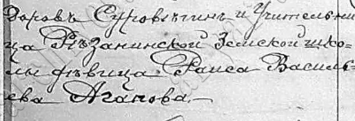 доровъ Суровѣгинъ и Учительни-
ца Рѣзанинской Земской шко-
лы дѣвица Раиса Василь-
ева Агапова.